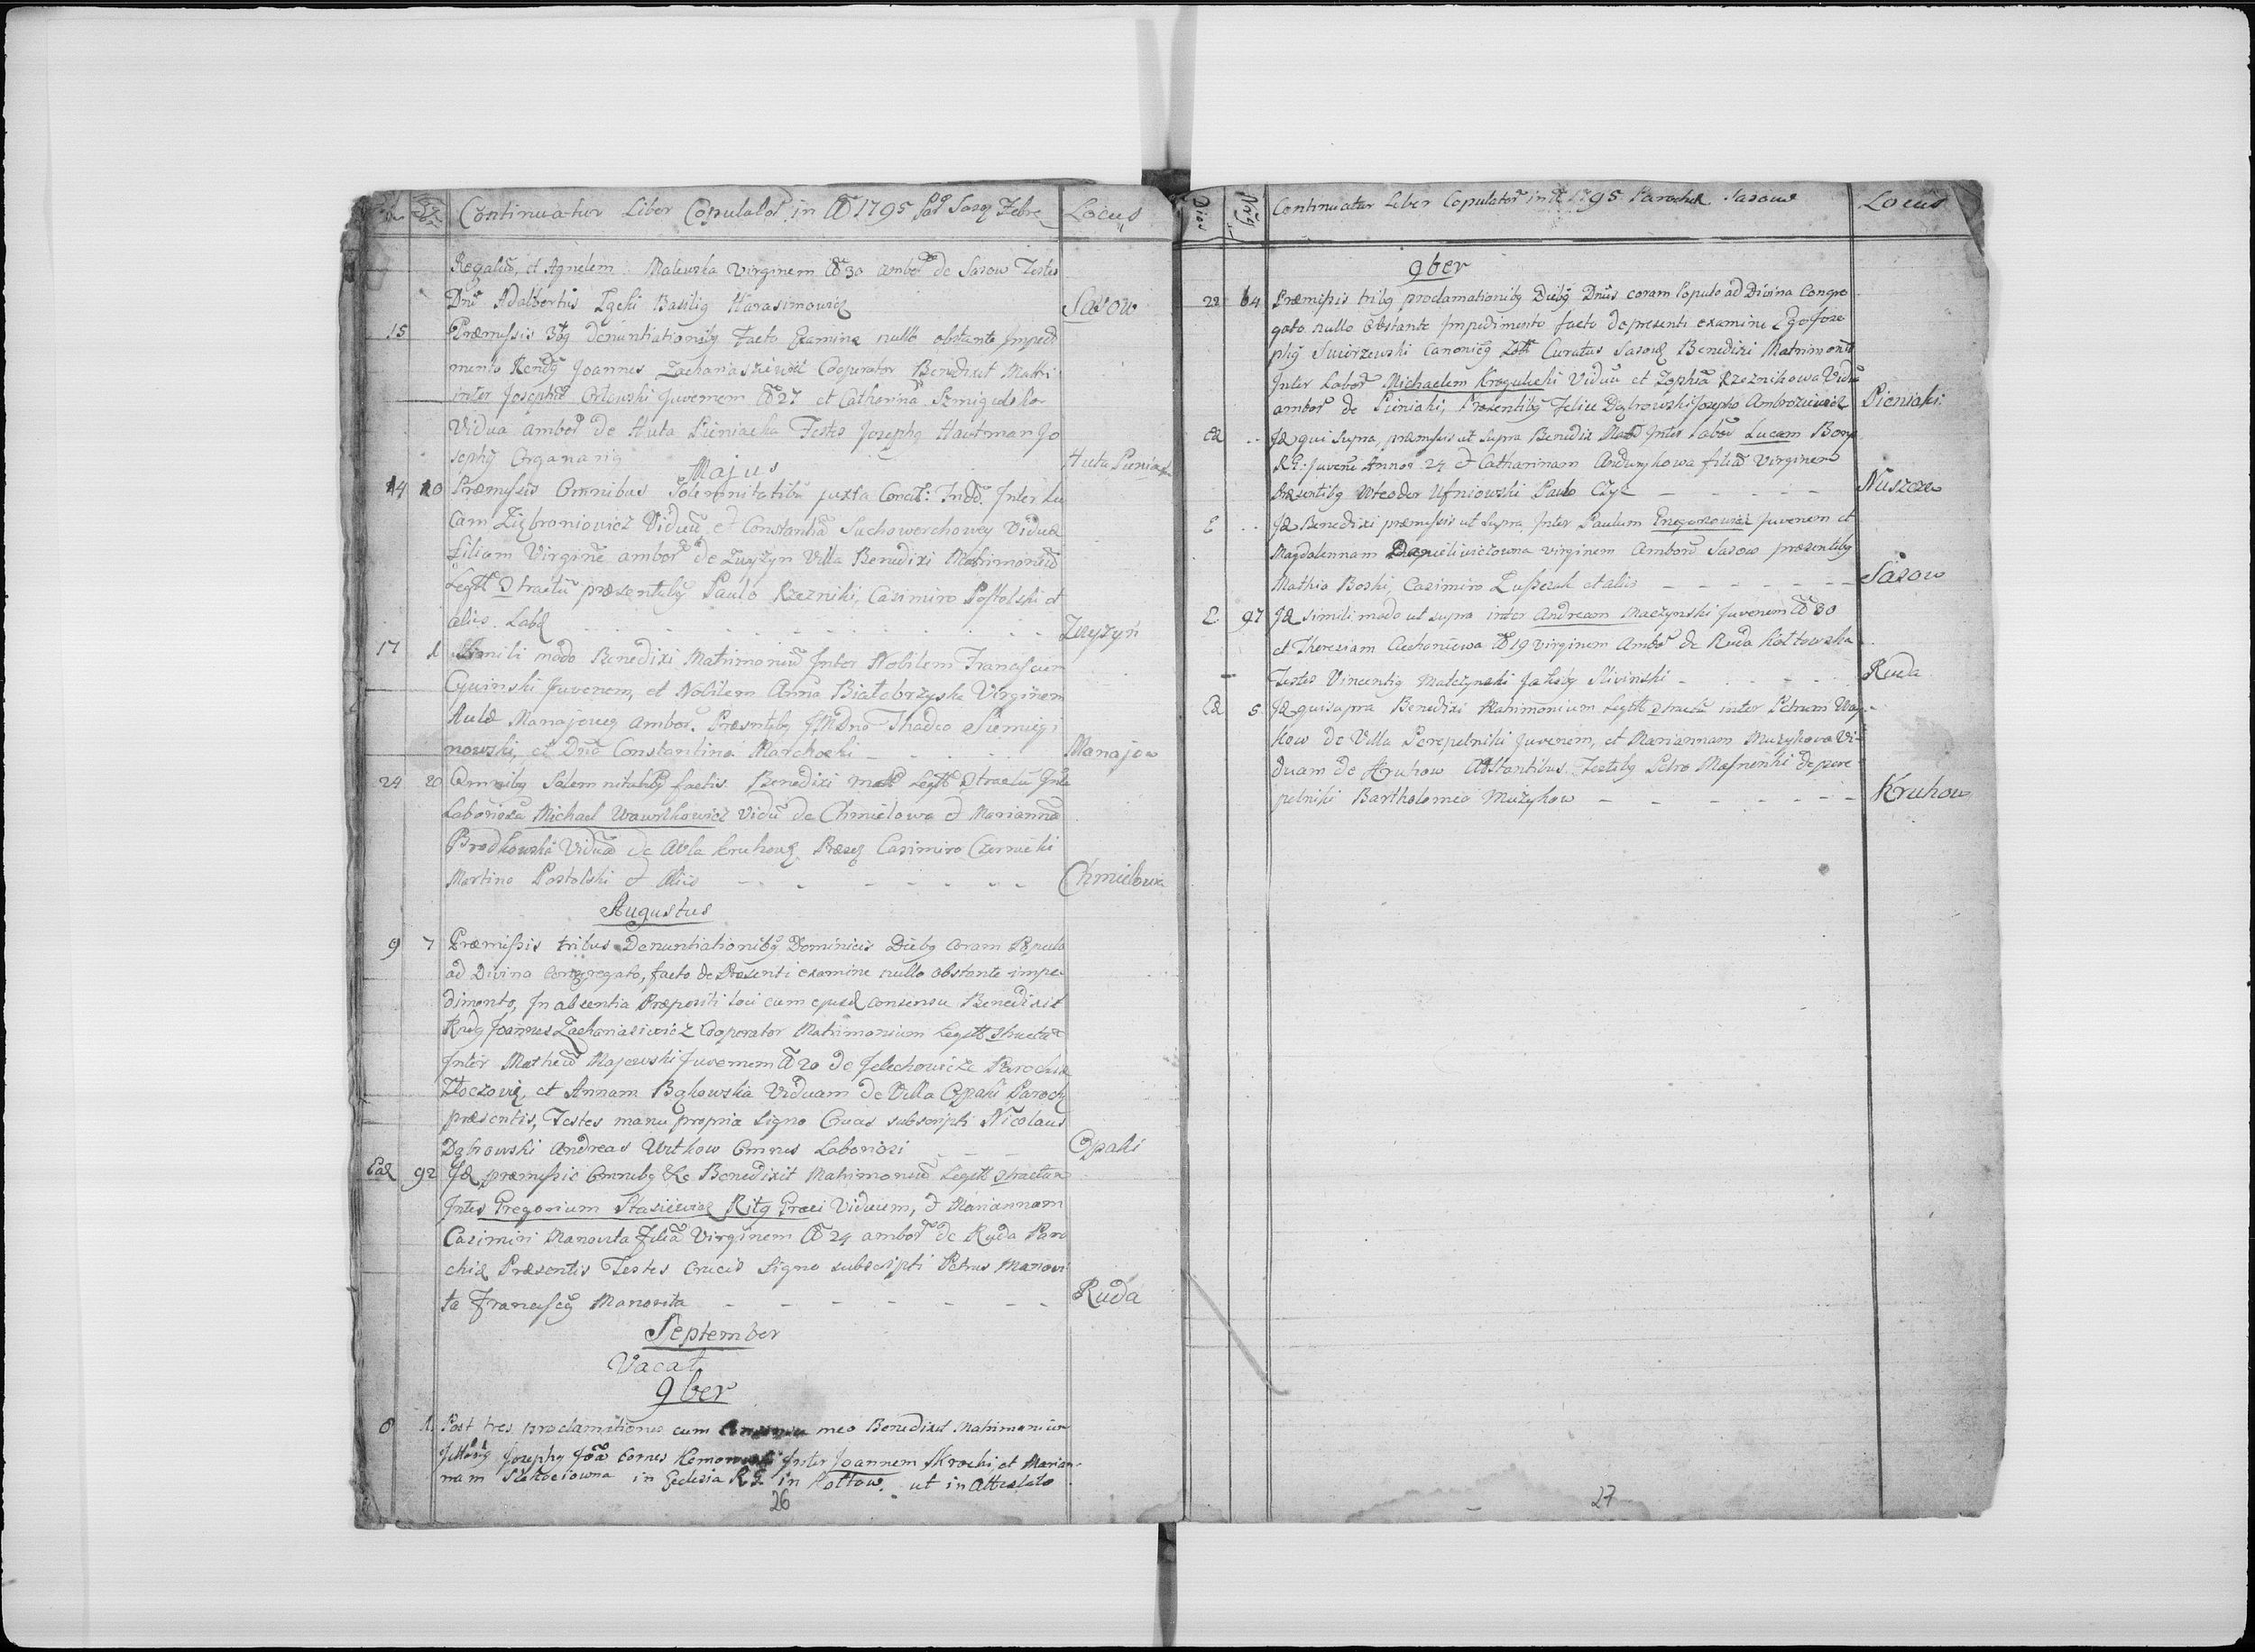 Continuatur Liber Copulator in Ao 1795 Par Sasov Febr
Locus
Regalis, et Agnetem Malewska Virginem Ao 30 ambor de Sasow Testes
Dnus Adalbertus Zgcki Basilig Harasimowicz
Sasow
15 Præmissis 3bg denuntiationibg Facto Examine nullo obstante Impedi
mento Rendg Joannes Zachariasiewicz Cooperator Benedixit Matri
inter Josephum Orlowski Juvenem Ao 27 et Catharina Szmigielska
Vidua ambor de Huta Pieniacka Testes Josephg Hautman Jo
sephg Organarig
Huta Pieniack
Majus
14 20 Præmissis Omnibus Solemnitatibus juxta Concil: Tridd. Inter Lu
cam Zizbroniowicz Viduu et Constantia Suchowerchowey Viduæ
Filiam Virgine ambor de Zwyzyn Villa Benedixi Matrimoniu
Legtt Stractu præsentibg Paulo Rzezniki, Casimiro Postolski et
aliis. Labd
Zwyzyń
17 1 Simili modo Benedixi Matrimoniu Inter Nobilem Francyscum
Cywinski Juvenem, et Nobilem Anna Białobrzyska Virginem
Aulæ Manajoveg ambor. Præsentibg Dno Thadeo Siemigi
nowski, et Dna Constantina Marchocki
Manajow
24 20 Omnibg Solemnitatibg factis Benedixi matr Legtt Stractu Inter
Laboriosu Michael Wawrzkowicz Vidu de Chmielowa et Marianna
Brodkowska Vidua de Aula Kruhow Præsg Casimiro Czernicki
Martino Postolski et Aliis
Chmielowa
Augustus
9 7 Præmissis tribus Denuntiationibg Dominicis Diebg coram Populo
ad Divina congregato, facto de Præsenti examine nullo obstante impe-
dimento, In absentia Præpositi loci cum ejusd consensu Benedixit
Rndg Joannes Zachariasiewicz Cooperator Matrimonium Legtt Stractu
Inter Matheu Majewski Juvenem Ao 20 de Jelechowicze Parochiæ
Złoczoviæ, et Annam Bąkowska Viduam de Villa Opaki Paroch
præsentis, Testes manu propria Signo Crucis subscripti Nicolaus
Dąbrowski Andreas Wutkow Omnes Laboriosi
Opaki
Ead 92 Id præmissis Omnibg &c Benedixit Matrimoniu Legtt Stractum
Inter Gregorium Stasiewicz Ritg Græci Viduum, et Mariannam
Casimiri Manowita Filia Virginem Ao 24 ambor de Ruda Paro
chiæ Præsentis Testes Crucis Signo subscripti Petrus Manowi
ta Franciscg Manowita
Ruda
September
Vacat
9ber
8 1. Post tres proclamationes cum meo Benedixit Matrimonium
Josephg Inter Joannem Skrocki et Marian
nam in Ecclesia RG in Kołtow. ut in Attestato
26
Dies
Continuatur Liber Copulator in Ao 1795 Parochiæ Sasow
Locus
9ber
22 64 Præmissis tribg proclamationibg Diebg Dnis coram Populo ad Divina Congre
gato nullo Obstante Impedimento facto de presenti examine Ego Jose
phg Swirzewski Canonicg Curatus Sasow Benedixi Matrimoniu
Inter Labor Michaelem Krogulecki Viduu et Zophia Rzeznikowa Vidua
ambor de Pieniaki, Præsentibg Felice Dąbrowski Josepho Ambroziewicz
Pieniaki
Ed Id qui Supra, præmissis ut Supra Benedixi Mad Inter Labor Lucam Bony
RG: Juvene Annor 24 et Catharinam Andruykowa filia Virginem
Præsentibg Theodor Ufniowski Paulo Czyz
Nuszcze
E Id Benedixi præmissis ut Supra Inter Paulum Gregorowicz Juvenem et
Magdalennam Danieliwiczowna virginem Amborum Sasow præsentibg
Mathia Boski, Casimiro Łuszczak et aliis
Sasow
E 97 Id simili modo ut supra inter Andream Maczynski Juvenem Ao 30
et Theresiam Ciechoniewa Ao 19 virginem Ambor de Ruda Kołtowska
Testes Vincentig Matczynski Jakobg Sliwinski
Ruda
Ed 5. Id qui supra Benedixi Matrimonium Legtt Stractu inter Petrum Way-
kow de Villa Perepelniki Juvenem, et Mariannam Muzykova Vi-
duam de Kruhow Adstantibus Testibg Petro Masnenki de pere
pelniki Bartholomeo Muzykow
Kruhow
27